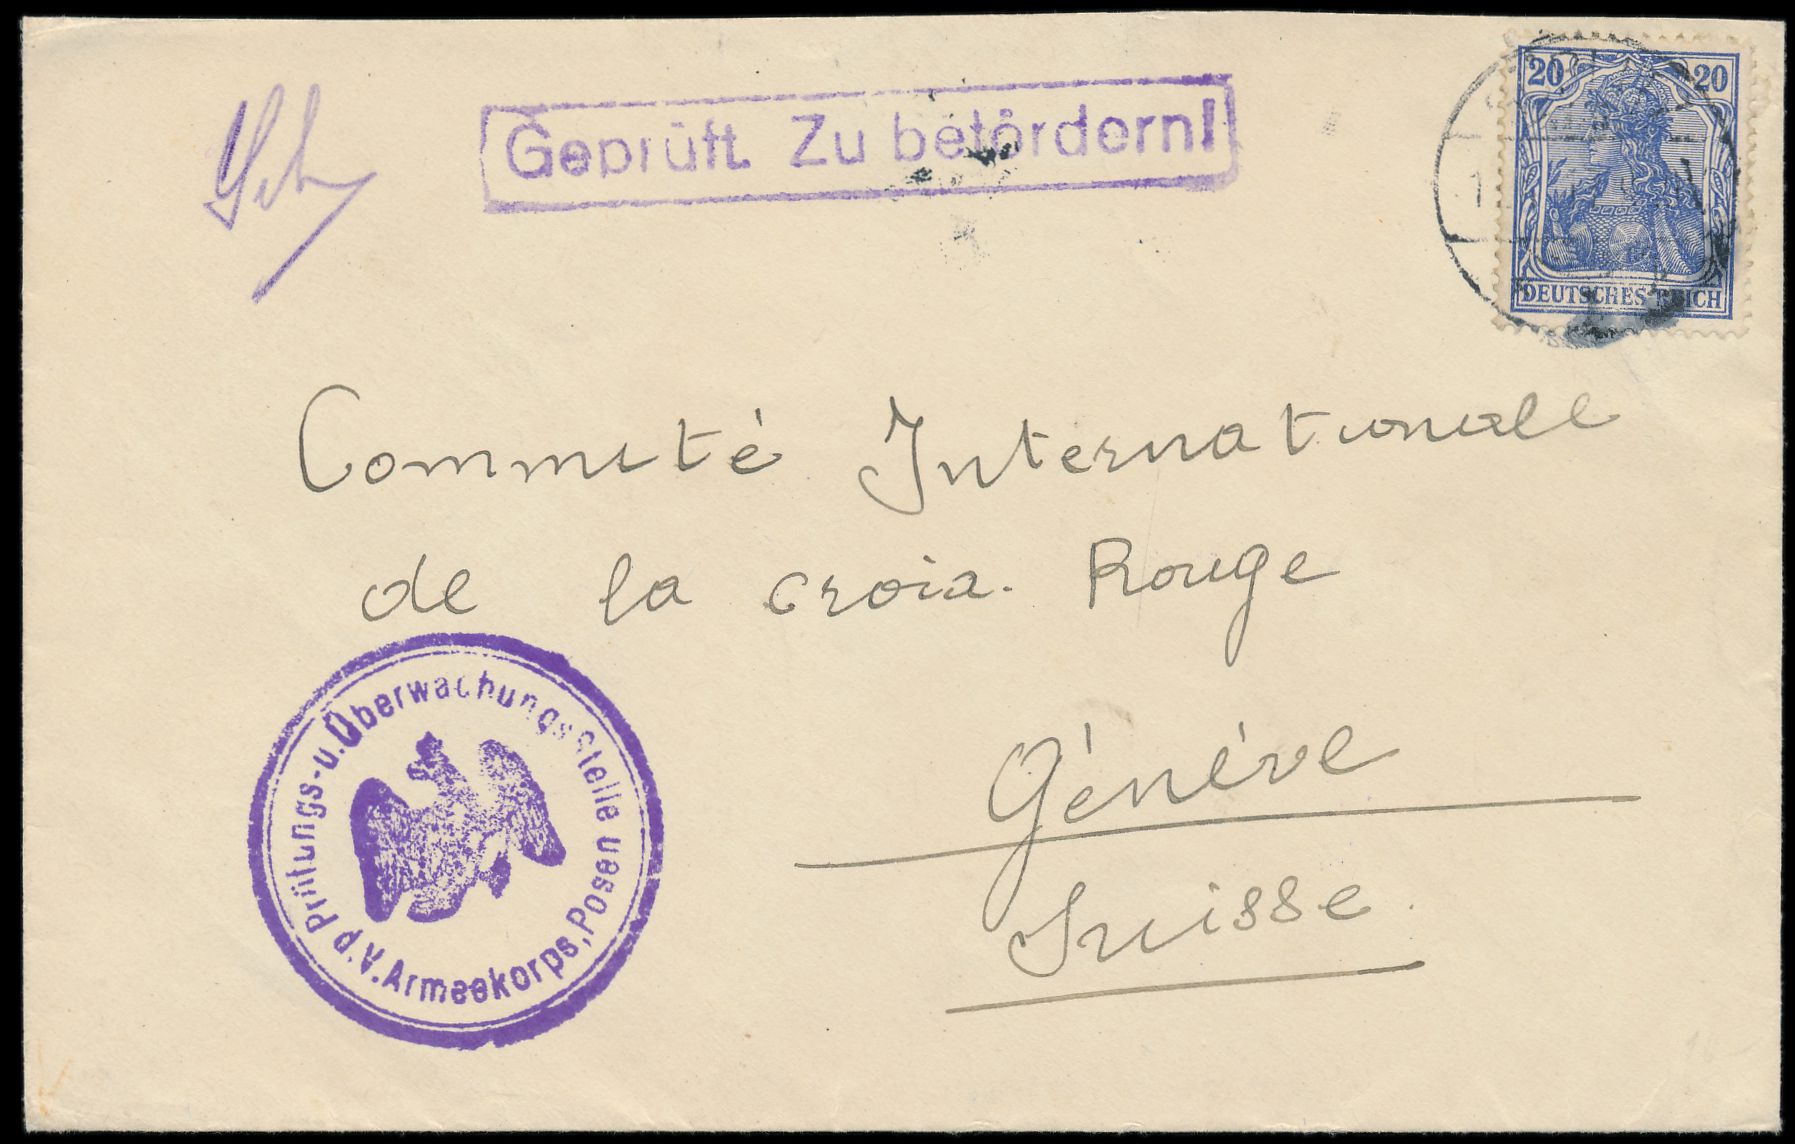 Geprüft. Zu befördern!
20 20
DEUTSCHES REICH
Commité Internationale
de la croix. Rouge
Génève
Suisse.
Prüfungs-u. Überwachungsstelle
d. V. Armeekorps, Posen